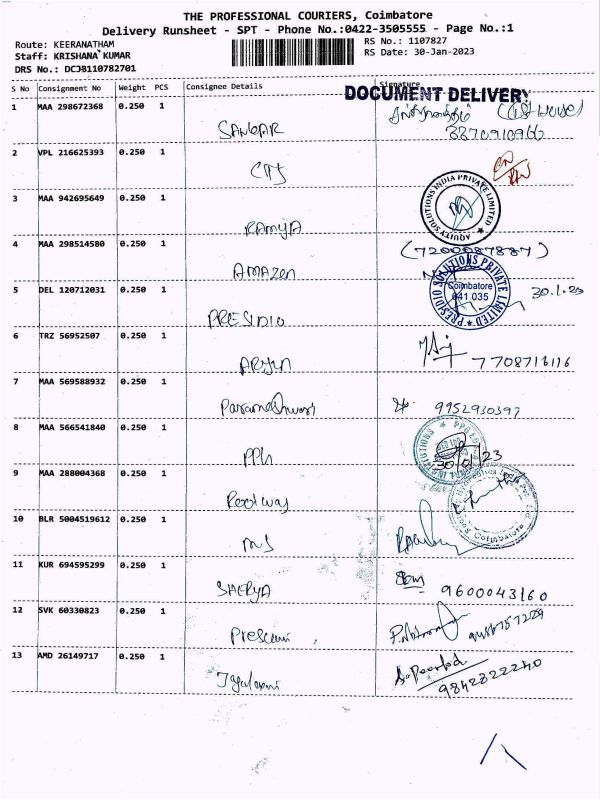 THE PROFESSIONAL COURIERS, Coimbatore
Delivery Runsheet - SPT - Phone No.:0422-3505555 - Page No.:1
Route: KEERANATHAM
Staff: KRISHANA KUMAR
DRS No.: DCJB110782701
RS No.: 1107827
RS Date: 30-Jan-2023
S No Consignment No Weight PCS Consignee Details Signature
DOCUMENT DELIVERY
1 MAA 298672368 0.250 1 SANKAR
2 VPL 216625393 0.250 1 CTS
3 MAA 942695649 0.250 1 RAMYA
AQUITY SOLUTIONS INDIA PRIVATE LIMITED
4 MAA 298514580 0.250 1 AMAZON
5 DEL 120712031 0.250 1 PRESIDIO 30.1.23
PRESIDIO SOLUTIONS PRIVATE LIMITED
Coimbatore
641 035
6 TRZ 56952507 0.250 1 ARJUN 7708716116
7 MAA 569588932 0.250 1 Parameshwari 9952930397
8 MAA 566541840 0.250 1 PPG 30/01/23
9 MAA 288004368 0.250 1 Rootway
10 BLR 5004519612 0.250 1 MS
11 KUR 694595299 0.250 1 SAERYA 9600043160
12 SVK 60330823 0.250 1
13 AMD 26149717 0.250 1 9842822240